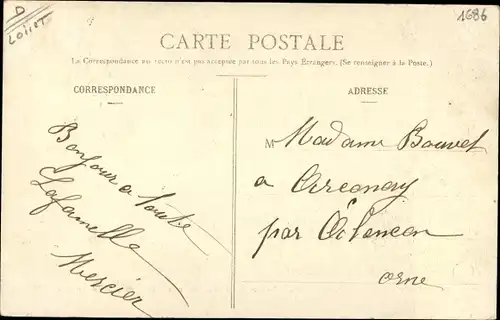 D
LOIRET
1686
CARTE POSTALE
La Correspondance au recto n'est pas acceptée par tous les Pays Étrangers. (Se renseigner à la Poste.)
CORRESPONDANCE
ADRESSE
Bonjour a toute
La famille
Mercier
M Madame Bouvet
a Arconay
par Alencon
orne